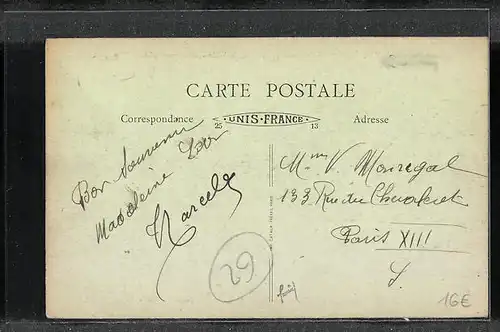 CARTE POSTALE
Correspondance
25 UNIS-FRANCE 13
Adresse
Bon Souvenir
Madeleine
Marcel
Mme V. Mouregal
133 Rue du Chevaleret
Paris XIII
29
16€